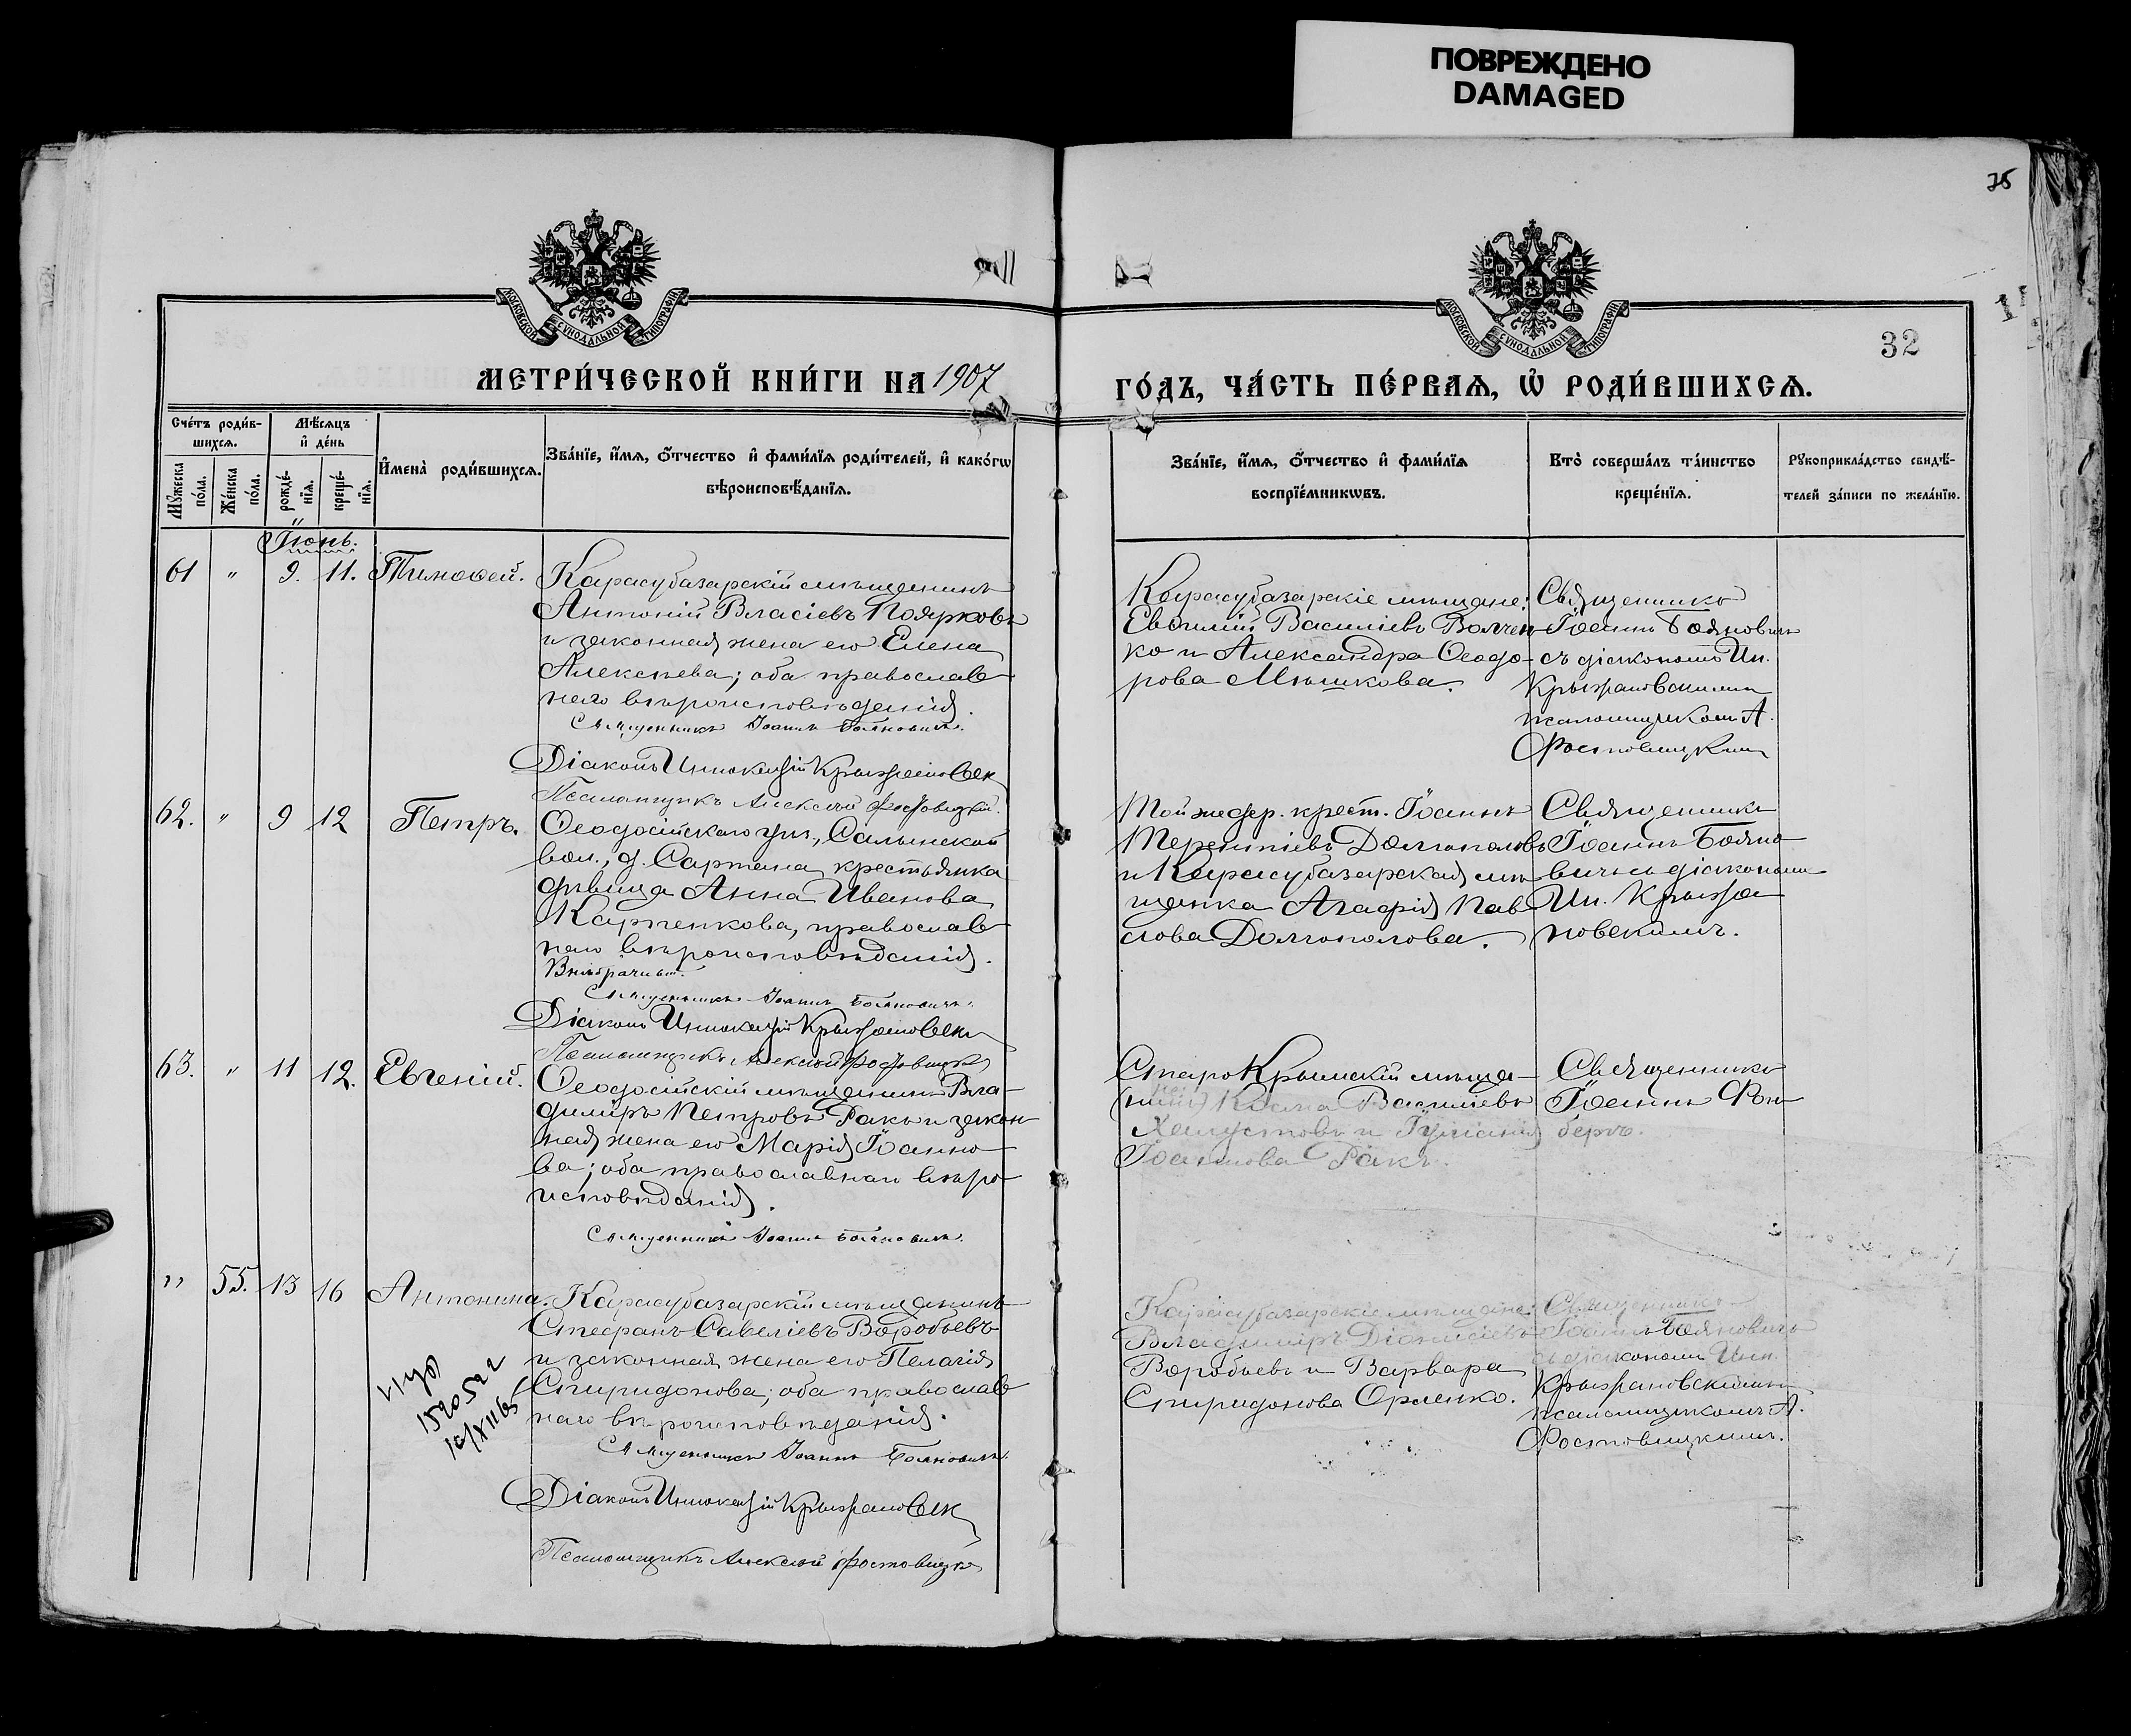 ПОВРЕЖДЕНО
DAMAGED
75
МОСКОВСКОЙ СУНОДАЛЬНОЙ ТИПОГРАФІИ
МОСКОВСКОЙ СУНОДАЛЬНОЙ ТИПОГРАФІИ
32
МЕТРИ́ЧЕСКОЙ КНИ́ГИ НА 1907
ГО́ДЪ, ЧА́СТЬ ПЕ́РВАѦ, Ѡ҆ РОДИ́ВШИХСѦ.
Сче́тъ роди́в-
шихсѧ.
Мѣ́сѧцъ
и҆ де́нь
Мꙋ́жеска
по́ла.
Же́нска
по́ла.
рожде́-
нїѧ.
креще́-
нїѧ.
И҆мена̀ роди́вшихсѧ.
Зва́нїе, и҆́мѧ, ѻ҆́тчество и҆ фами́лїѧ роди́телей, и҆ како́гѡ
вѣроисповѣ́данїѧ.
Зва́нїе, и҆́мѧ, ѻ҆́тчество и҆ фами́лїѧ
воспрїе́мникѡвъ.
Кто̀ соверша́лъ та́инство
креще́нїѧ.
Рꙋкоприкла́дство свидѣ́-
телей за́писи по жела́нїю.
Іюнь.
61 " 9. 11. Тимоѳей.
Карасубазарскій мѣщанинъ
Антоній Власіевъ Поярковъ
и законная жена его Елена
Алексѣева; оба православ
наго вѣроисповѣданія.
Священникъ Іоаннъ Бояновичъ.
Діаконъ Иннокентій Крыжановск
Псаломщикъ Алексѣй Ростовицкій.
Карасубазарскіе мѣщане:
Евѳимій Василіевъ Волчен-
ко и Александра Ѳеодо-
рова Мѣшкова.
Священникъ
Іоаннъ Бояновичъ
съ діакономъ Ин.
Крыжановскимъ
псаломщикомъ А.
Ростовицкимъ
62. " 9 12 Петръ.
Ѳеодосійскаго уѣз., Салынской
вол., д. Сартана, крестьянка
дѣвица Анна Иванова
Карпенкова, православ
наго вѣроисповѣданія.
Внѣбрачн
Священникъ Іоаннъ Бояновичъ.
Діаконъ Иннокентій Крыжановск
Псаломщикъ Алексѣй Ростовицкій
Той же дер. крест. Іоаннъ
Терентіевъ Долгополовъ
и Карасубазарская мѣ
щанка Агафія Пав
лова Долгополова.
Священникъ
Іоаннъ Бояно
вичъ съ діакономъ
Ин. Крыжа
новскимъ.
63. " 11 12. Евгеній.
Ѳеодосійскій мѣщанинъ Вла-
димиръ Петровъ Ракъ и закон
ная жена его Марія Іоанно
ва; оба православнаго вѣро
исповѣданія.
Священникъ Іоаннъ Бояновичъ.
СтароКрымскій мѣща-
Василіевъ
Хапустовъ и
Іоаннова Ракъ.
Священникъ
Іоаннъ Фон
берг.
" 55. 13 16 Антонина.
Карасубазарскій мѣщанинъ
Стефанъ Савеліевъ Воробьевъ
и законная жена его Пелагія
Спиридонова; оба православ
наго вѣроисповѣданія.
Священникъ Іоаннъ Бояновичъ.
Діаконъ Иннокентій Крыжановск
Псаломщикъ Алексѣй Ростовицкі
Карасубазарскіе мѣщане:
Владиміръ Діонисіевъ
Воробьевъ и Варвара
Спиридонова Орленко.
Священникъ
Іоаннъ Бояновичъ
съ діакономъ Инн.
Крыжановскимъ
псаломщикомъ А.
Ростовицкимъ.
1520522